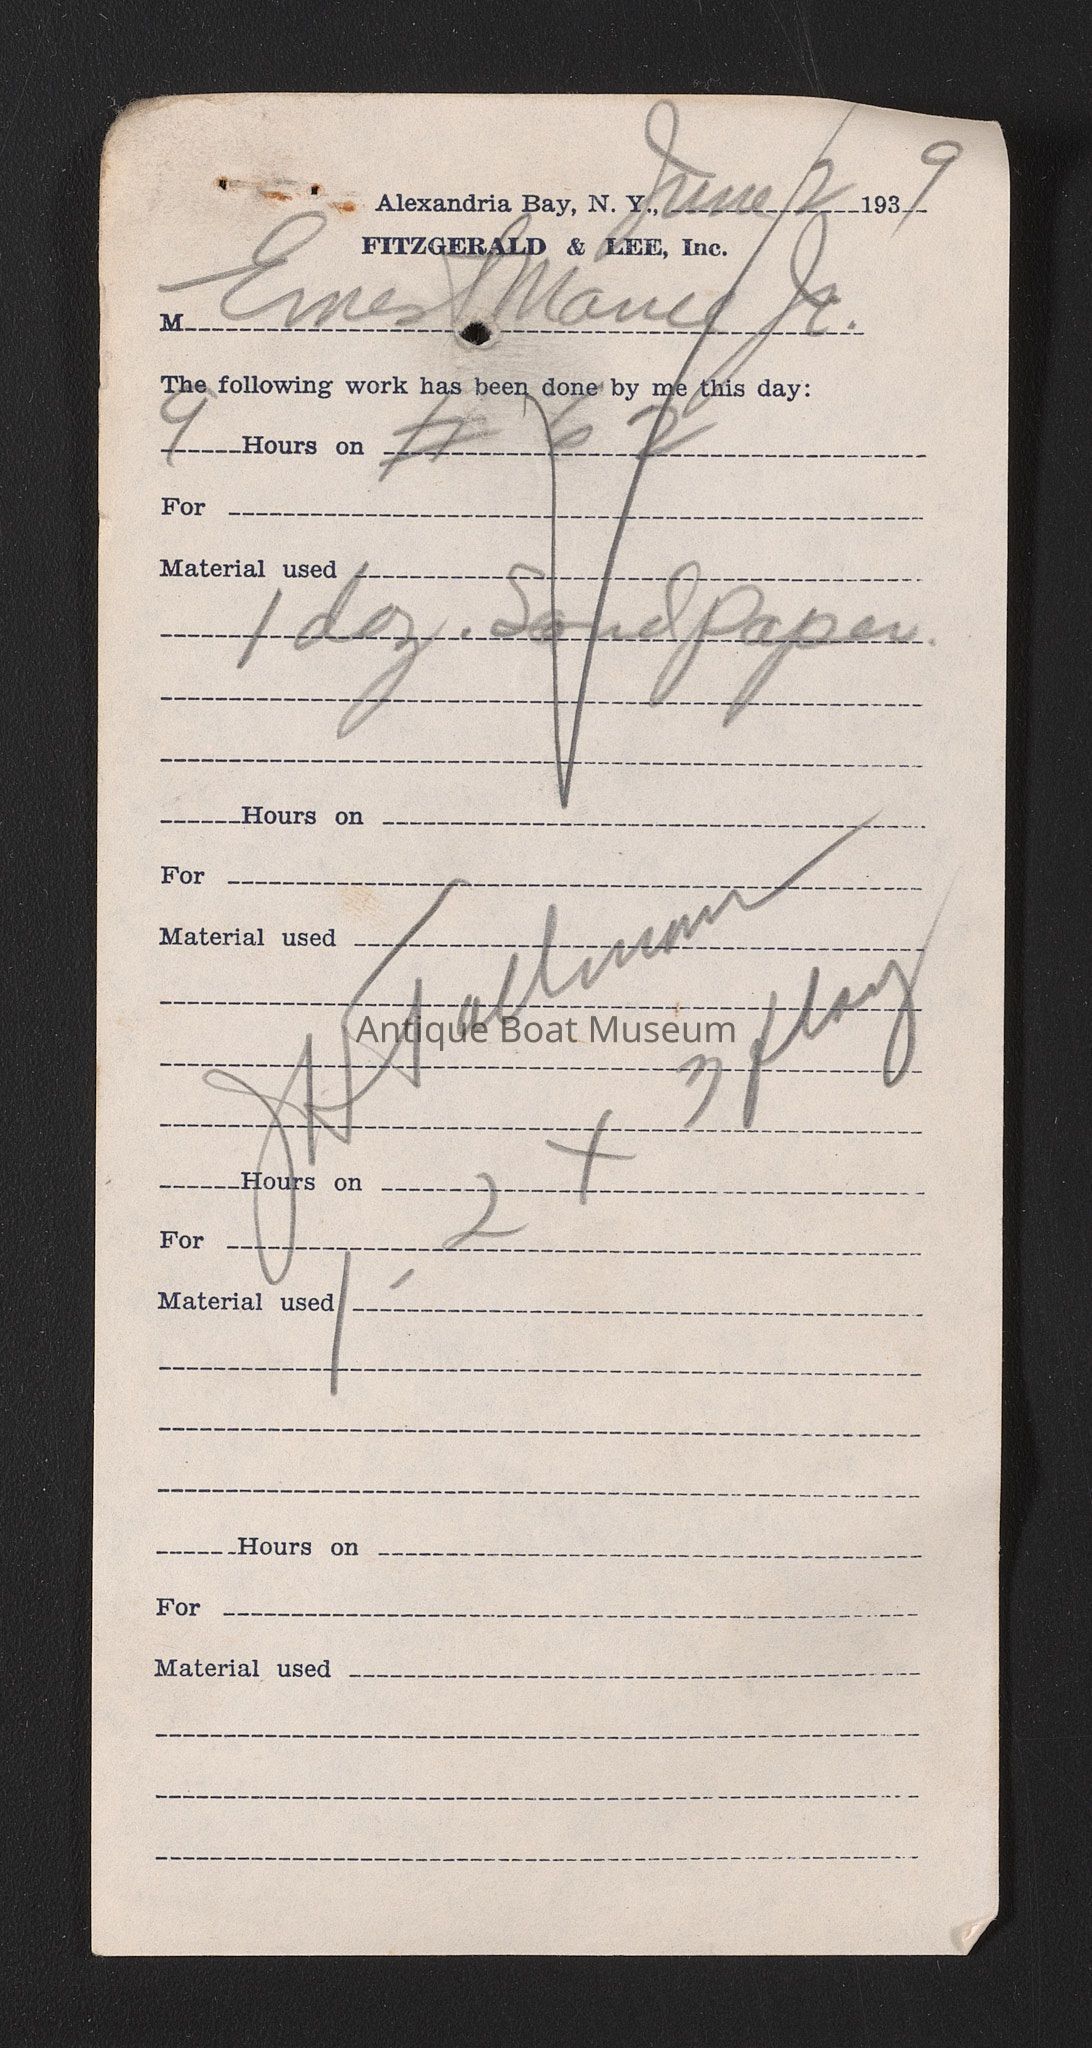 Alexandria Bay, N. Y., June 2 1939
FITZGERALD & LEE, Inc.
M Ernest Jr.
The following work has been done by me this day:
9 Hours on # 62
For
Material used
1 doz. Sand paper.
Hours on
For
Material used
Antique Boat Museum
2 x 3
Hours on
For
Material used
Hours on
For
Material used